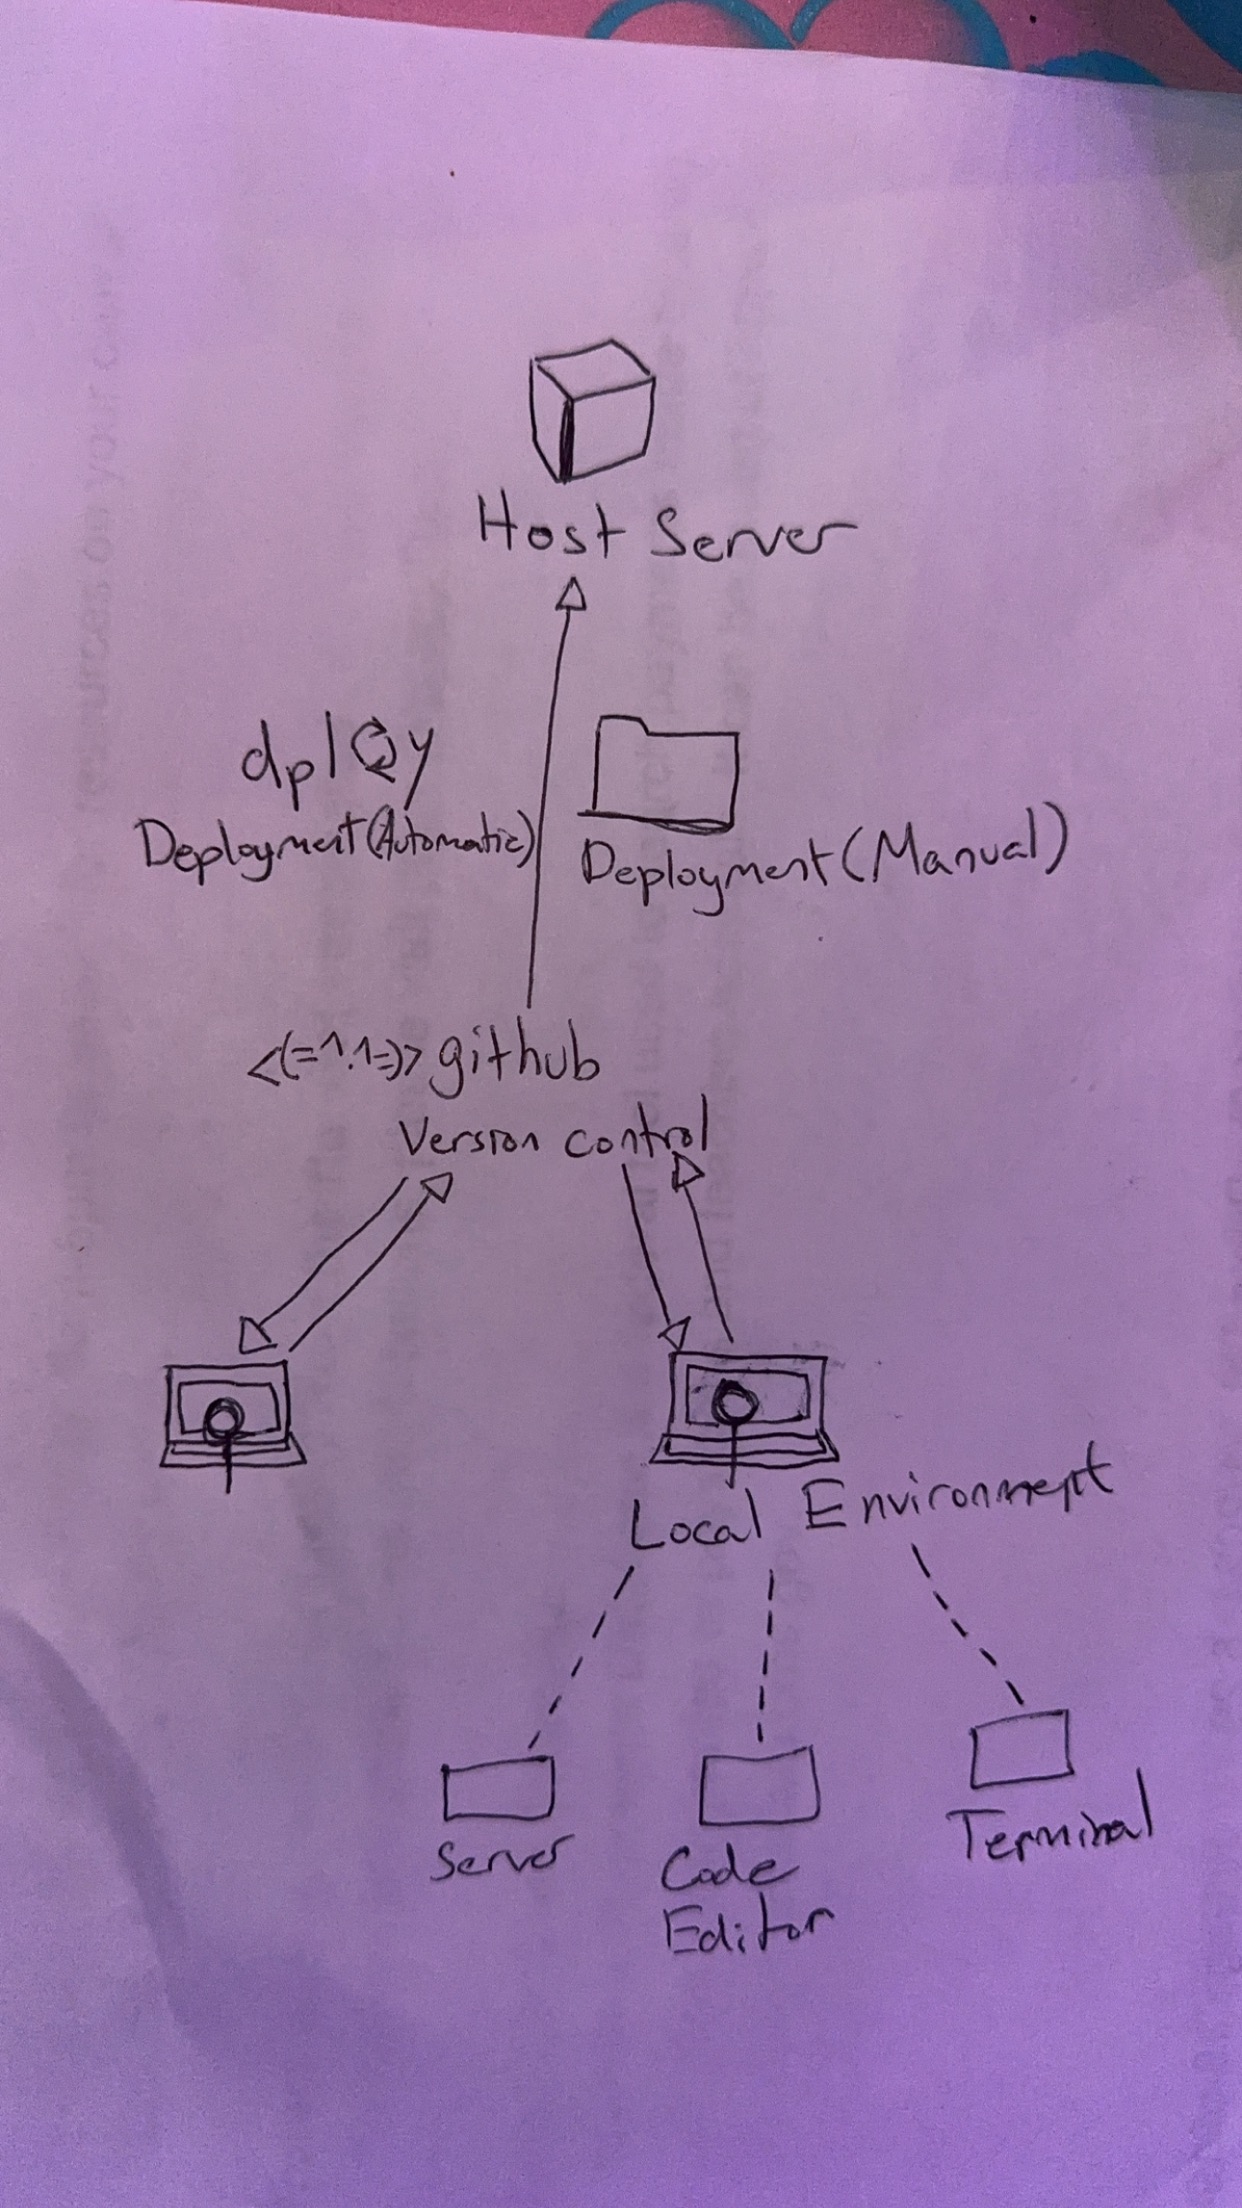 Host Server
dploy
Deployment (Automatic)
Deployment (Manual)
<(=^.^=)> github
Version control
Local Environment
Server
Code
Editor
Terminal